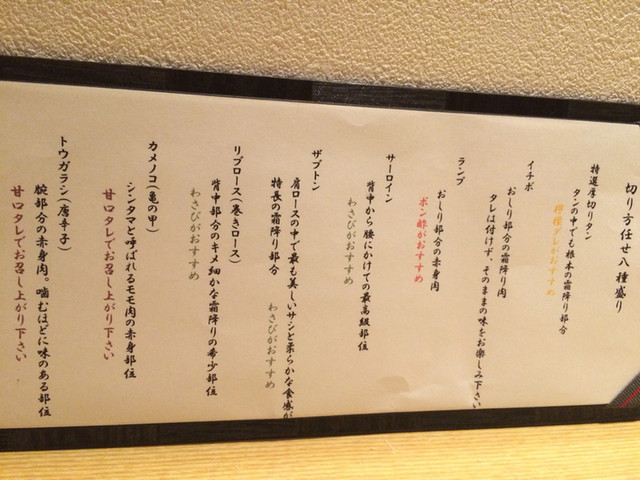 切り方任せ八種盛り
特選厚切りタン
タンの中でも根本の霜降り部分
檸檬タレがおすすめ
イチボ
おしり部分の霜降り肉
タレは付けず、そのままの味をお楽しみ下さい
ランプ
おしり部分の赤身肉
ポン酢がおすすめ
サーロイン
背中から腰にかけての最高級部位
わさびがおすすめ
ザブトン
肩ロースの中で最も美しいサシと柔らかな食感が
特長の霜降り部分
わさびがおすすめ
リブロース(巻きロース)
背中部分のキメ細かな霜降りの希少部位
わさびがおすすめ
カメノコ(亀の甲)
シンタマと呼ばれるモモ肉の赤身部位
甘口タレでお召し上がり下さい
トウガラシ(唐辛子)
腕部分の赤身肉。噛むほどに味のある部位
甘口タレでお召し上がり下さい